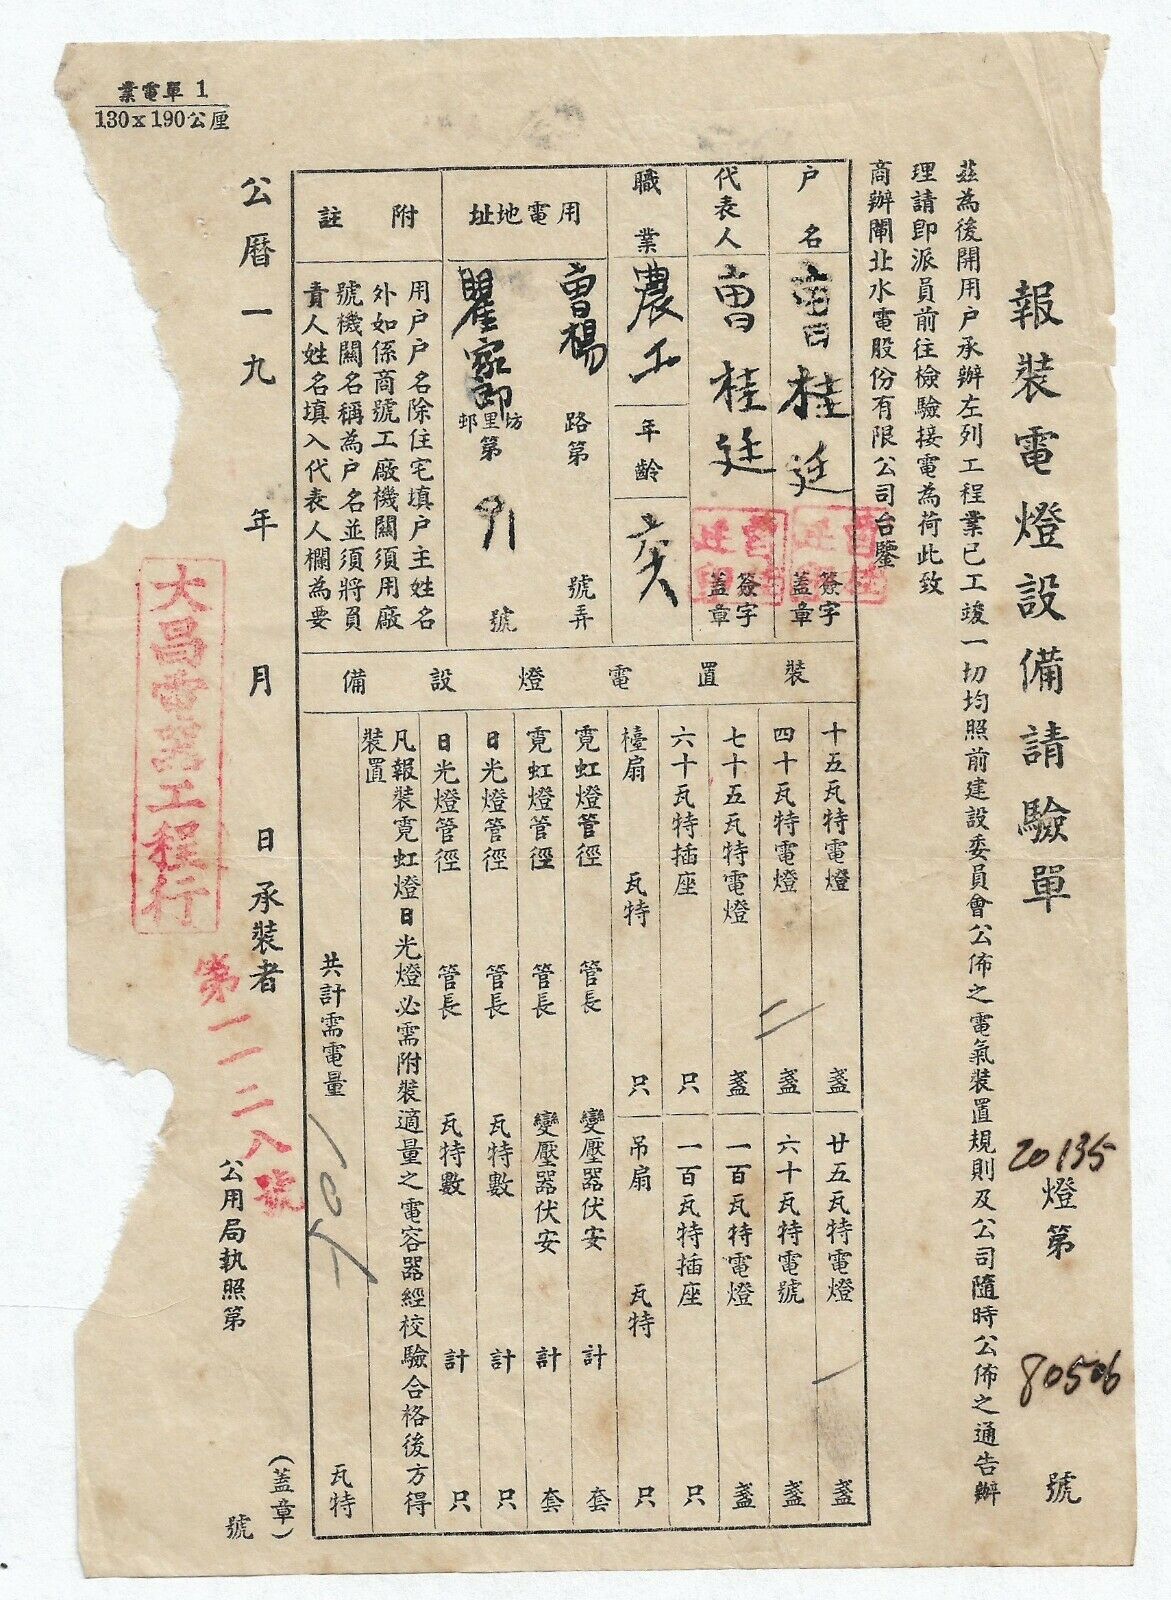 業電單 1
130x190公厘
報裝電燈設備請驗單
20135 燈第 80506 號
茲為後開用戶承辦左列工程業已工竣一切均照前建設委員會公佈之電氣裝置規則及公司隨時公佈之通告辦
理請即派員前往檢驗接電為荷此致
商辦閘北水電股份有限公司台鑒
戶名 曹桂廷 簽字蓋章
代表人 曹桂廷 簽字蓋章
職業 農工 年齡
用電地址 曹楊 路第 號弄
瞿家 邨里坊第 91 號
附註
用戶戶名除住宅填戶主姓名
外如係商號工廠機關須用廠
號機關名稱為戶名並須將負
責人姓名填入代表人欄為要
裝置電燈設備
十五瓦特電燈 盞 廿五瓦特電燈 一 盞
四十瓦特電燈 二 盞 六十瓦特電號 盞
七十五瓦特電燈 盞 一百瓦特電燈 盞
六十瓦特插座 只 一百瓦特插座 只
檯扇 瓦特 只 吊扇 瓦特 只
霓虹燈管徑 管長 變壓器伏安 計 套
霓虹燈管徑 管長 變壓器伏安 計 套
日光燈管徑 管長 瓦特數 計 只
日光燈管徑 管長 瓦特數 計 只
凡報裝霓虹燈日光燈必需附裝適量之電容器經校驗合格後方得
裝置
共計需電量 瓦特
公曆一九 年 月 日承裝者 (蓋章)
大昌電器工程行
第一一二八號
公用局執照第 號